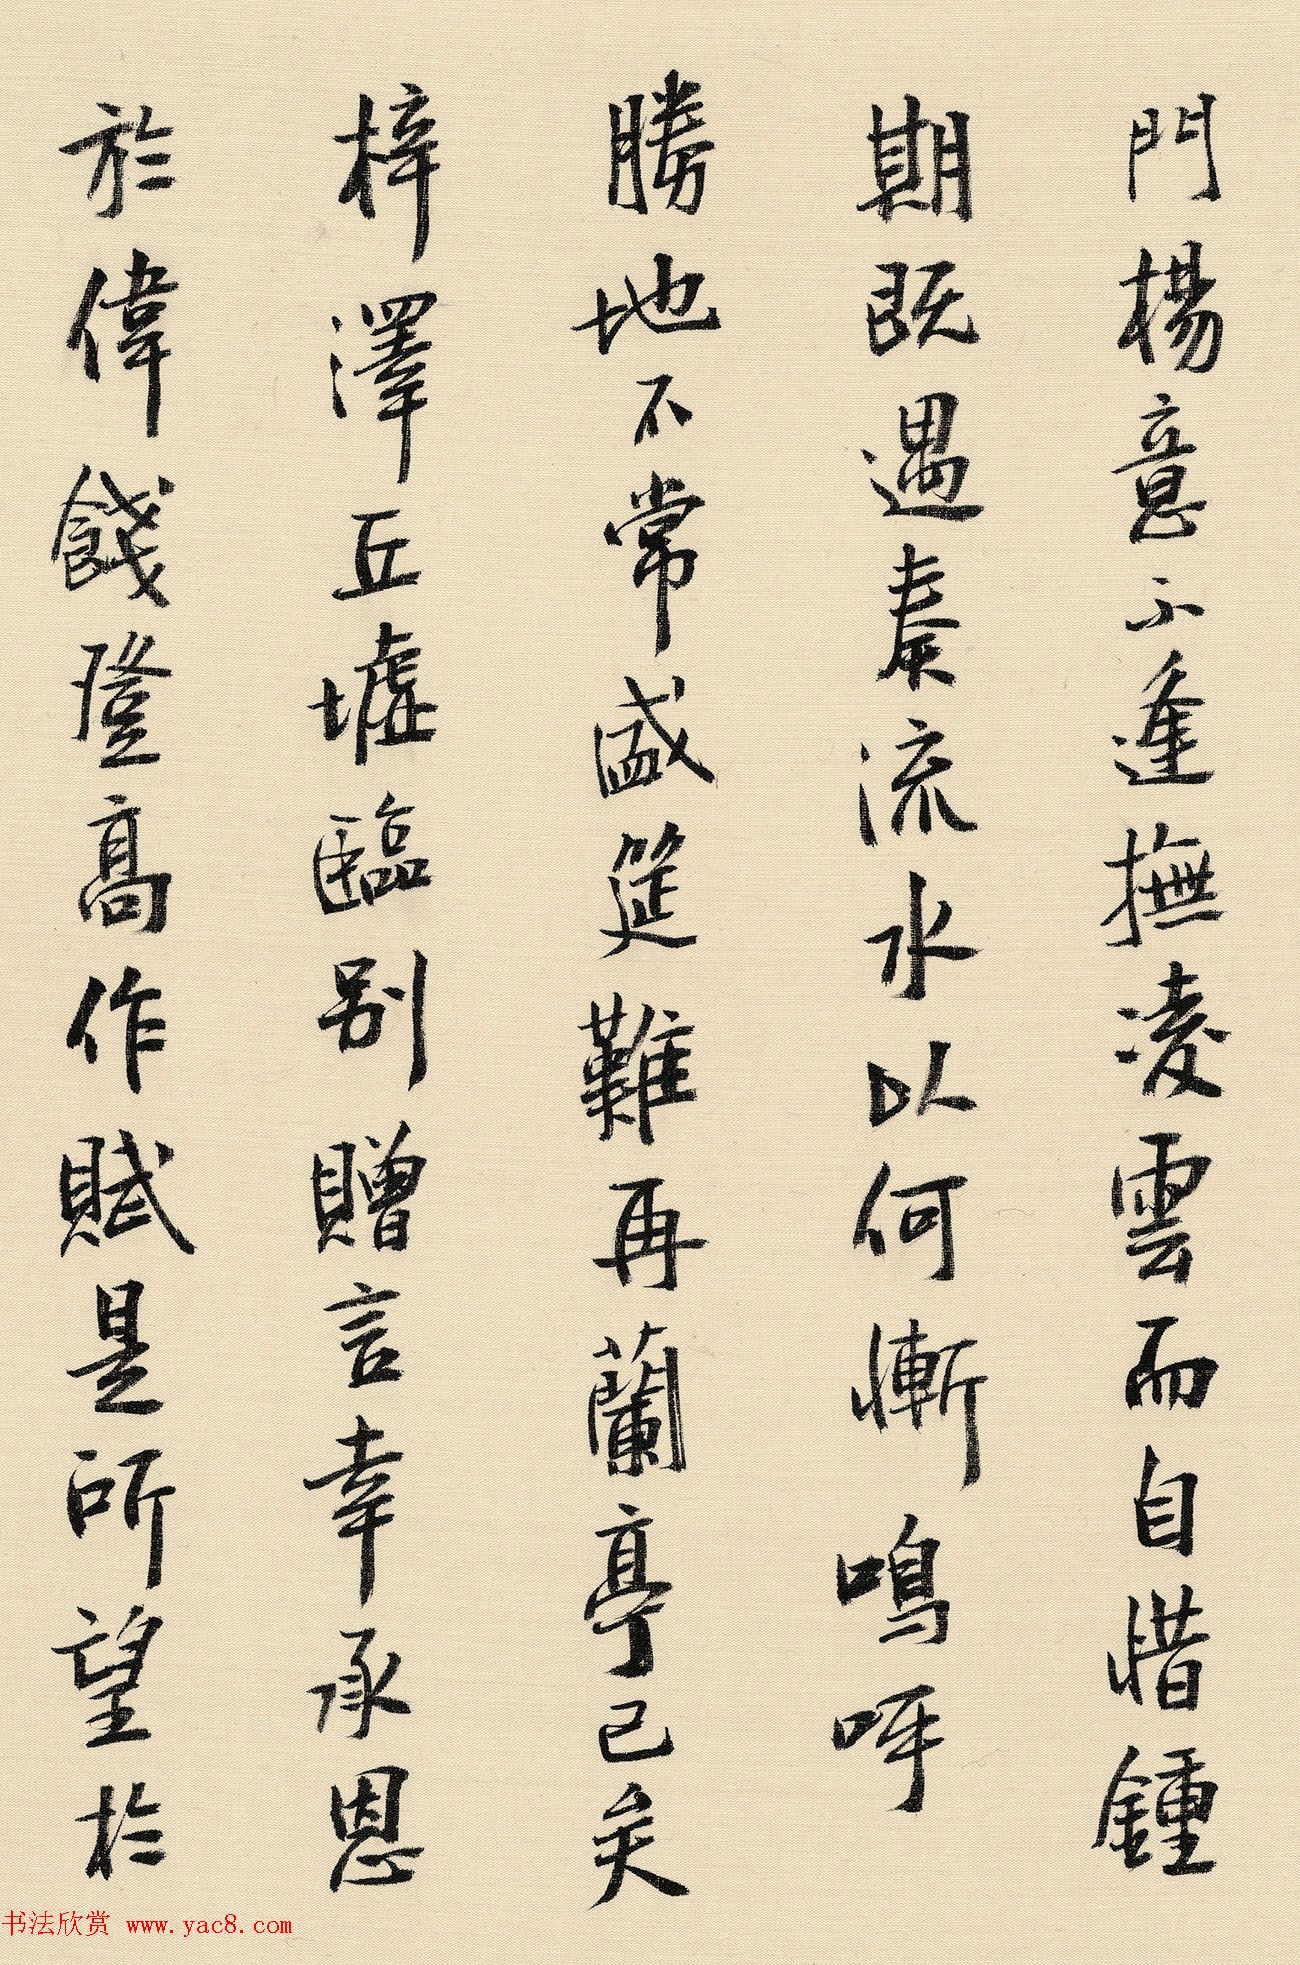 門楊意不逢撫凌雲而自惜鍾
期既遇奏流水以何慚鳴呼
勝地不常盛筵難再蘭亭已矣
梓澤丘墟臨别贈言幸承恩
於偉餞登高作賦是所望於
书法欣赏 www.yac8.com